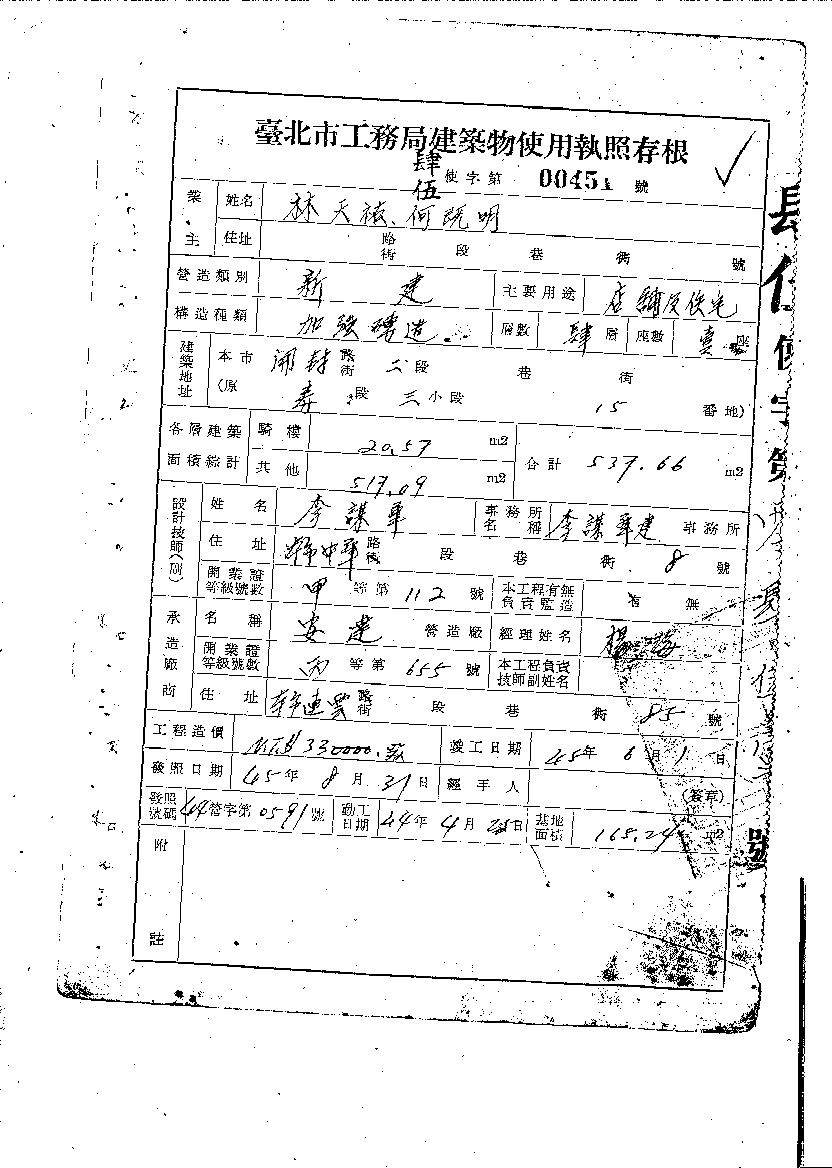 臺北市工務局建築物使用執照存根
肆伍 使字第 0045 號
業主 姓名 林天 何既明
住址 路街 段 巷 街 號
營造類別 新建 主要用途 店舖及住宅
構造種類 加強磚造 層數 肆層 座數 壹座
建築地址 本市 開封路街 段 巷 街
(原 段 三小段 15 番地)
各層建築面積綜計 騎樓 20.57 m2 合計 537.66 m2
其他 517.09 m2
設計技師(副) 姓名 李謀華 事務所名稱 李謀華建 事務所
住址 中華路 段 巷 街 8 號
開業證等級號數 甲 等第 112 號 本工程有無負責監造 有 無
承造廠商 名稱 安建 營造廠 經理姓名 楊
開業證等級號數 丙 等第 655 號 本工程負責技師副姓名
住址 連雲路街 段 巷 街 85 號
工程造價 NT$ 330000. 竣工日期 45年 6月 1日
發照日期 45年 8月 31日 經手人 (簽章)
發照號碼 44營字第 0591 號 動工日期 44年 4月 日 基地面積 168.24 m2
附註